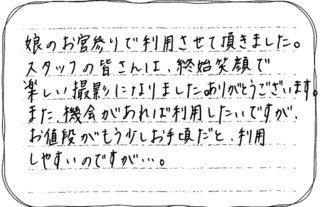 娘のお宮参りで利用させて頂きました。
スタッフの皆さんは、終始笑顔で
楽しい撮影になりましたありがとうございます。
また、機会があれば利用したいですが、
お値段がもう少しお手頃だと、利用
しやすいのですが…。